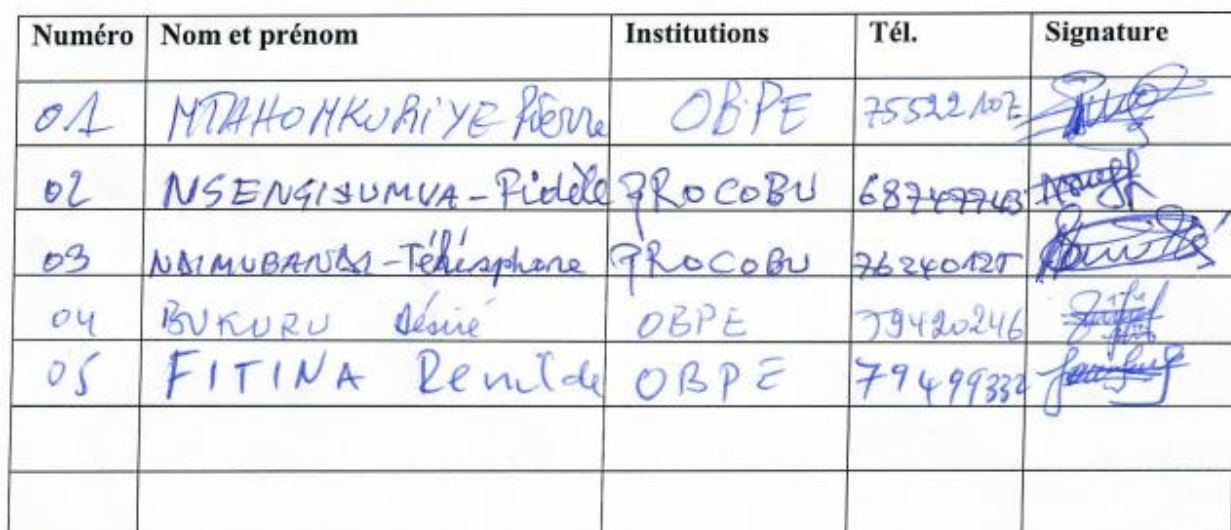 Numéro Nom et prénom Institutions Tél. Signature
01 NTAHOMKURiYE Pierre OBPE 75522107
02 NSENGIYUMVA-Fidèle PROCOBU 68749743
03 NDIMUBANDI-Télésphore PROCOBU 76240125
04 BUKURU Désiré OBPE 79420246
05 FITINA Renilde OBPE 79499332